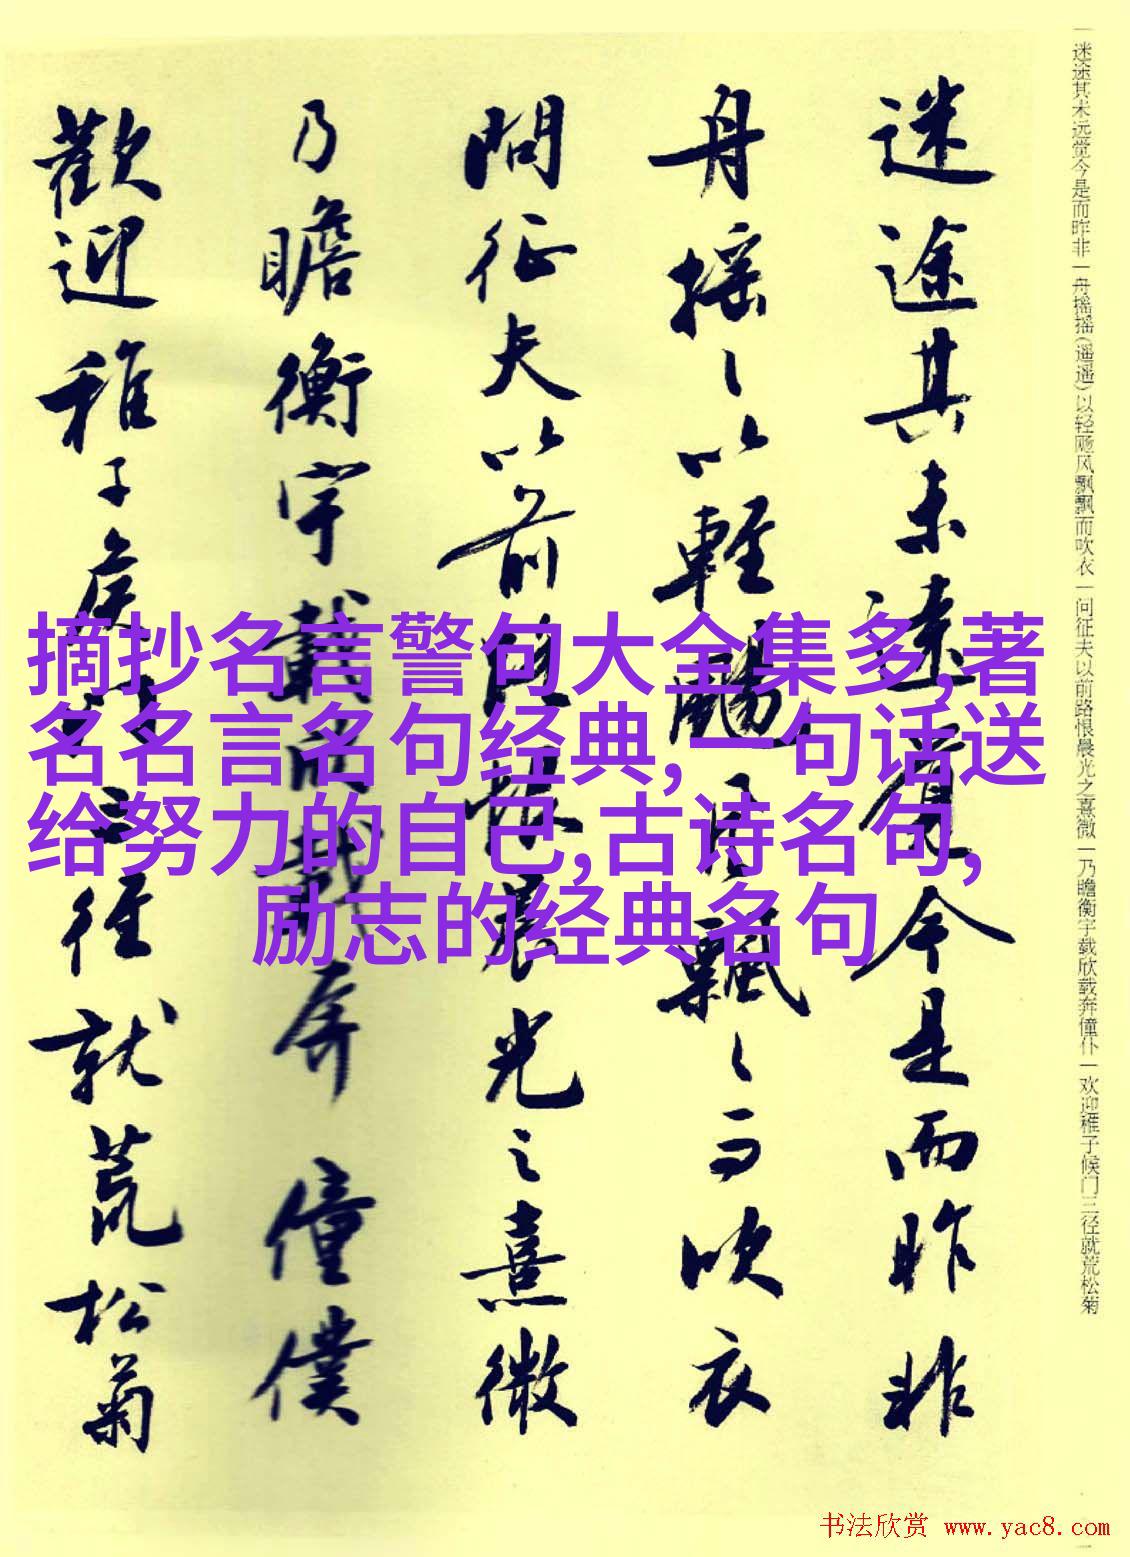 迷途其未遠覺今是而昨非
舟摇〻以輕颺風飄〻而吹衣
問征夫以前路恨晨光之熹微
乃瞻衡宇載欣載奔僮僕
歡迎稚子候門三徑就荒松菊
一迷途其未远觉今是而昨非一舟摇摇(遥遥)以轻飏风飘飘而吹衣一问征夫以前路恨晨光之熹微一乃瞻衡宇载欣载奔僮仆一欢迎稚子候门三径就荒松菊
摘抄名言警句大全集多,著
名名言名句经典,一句话送
给努力的自己,古诗名句,
励志的经典名句
书法欣赏 www.yac8.com